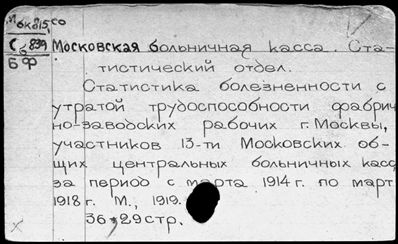 6к815, со
С 6 839
БФ
Московская больничная касса. Ста-
тистический отдел.
Статистика болезненности с
утратой трудоспособности фабрич
но-заводских рабочих г. Москвы,
участников 13-ти Московских об-
щих центральных больничных касс,
за период с марта 1914 г. по март
1918 г. М., 1919.
36 29 стр.